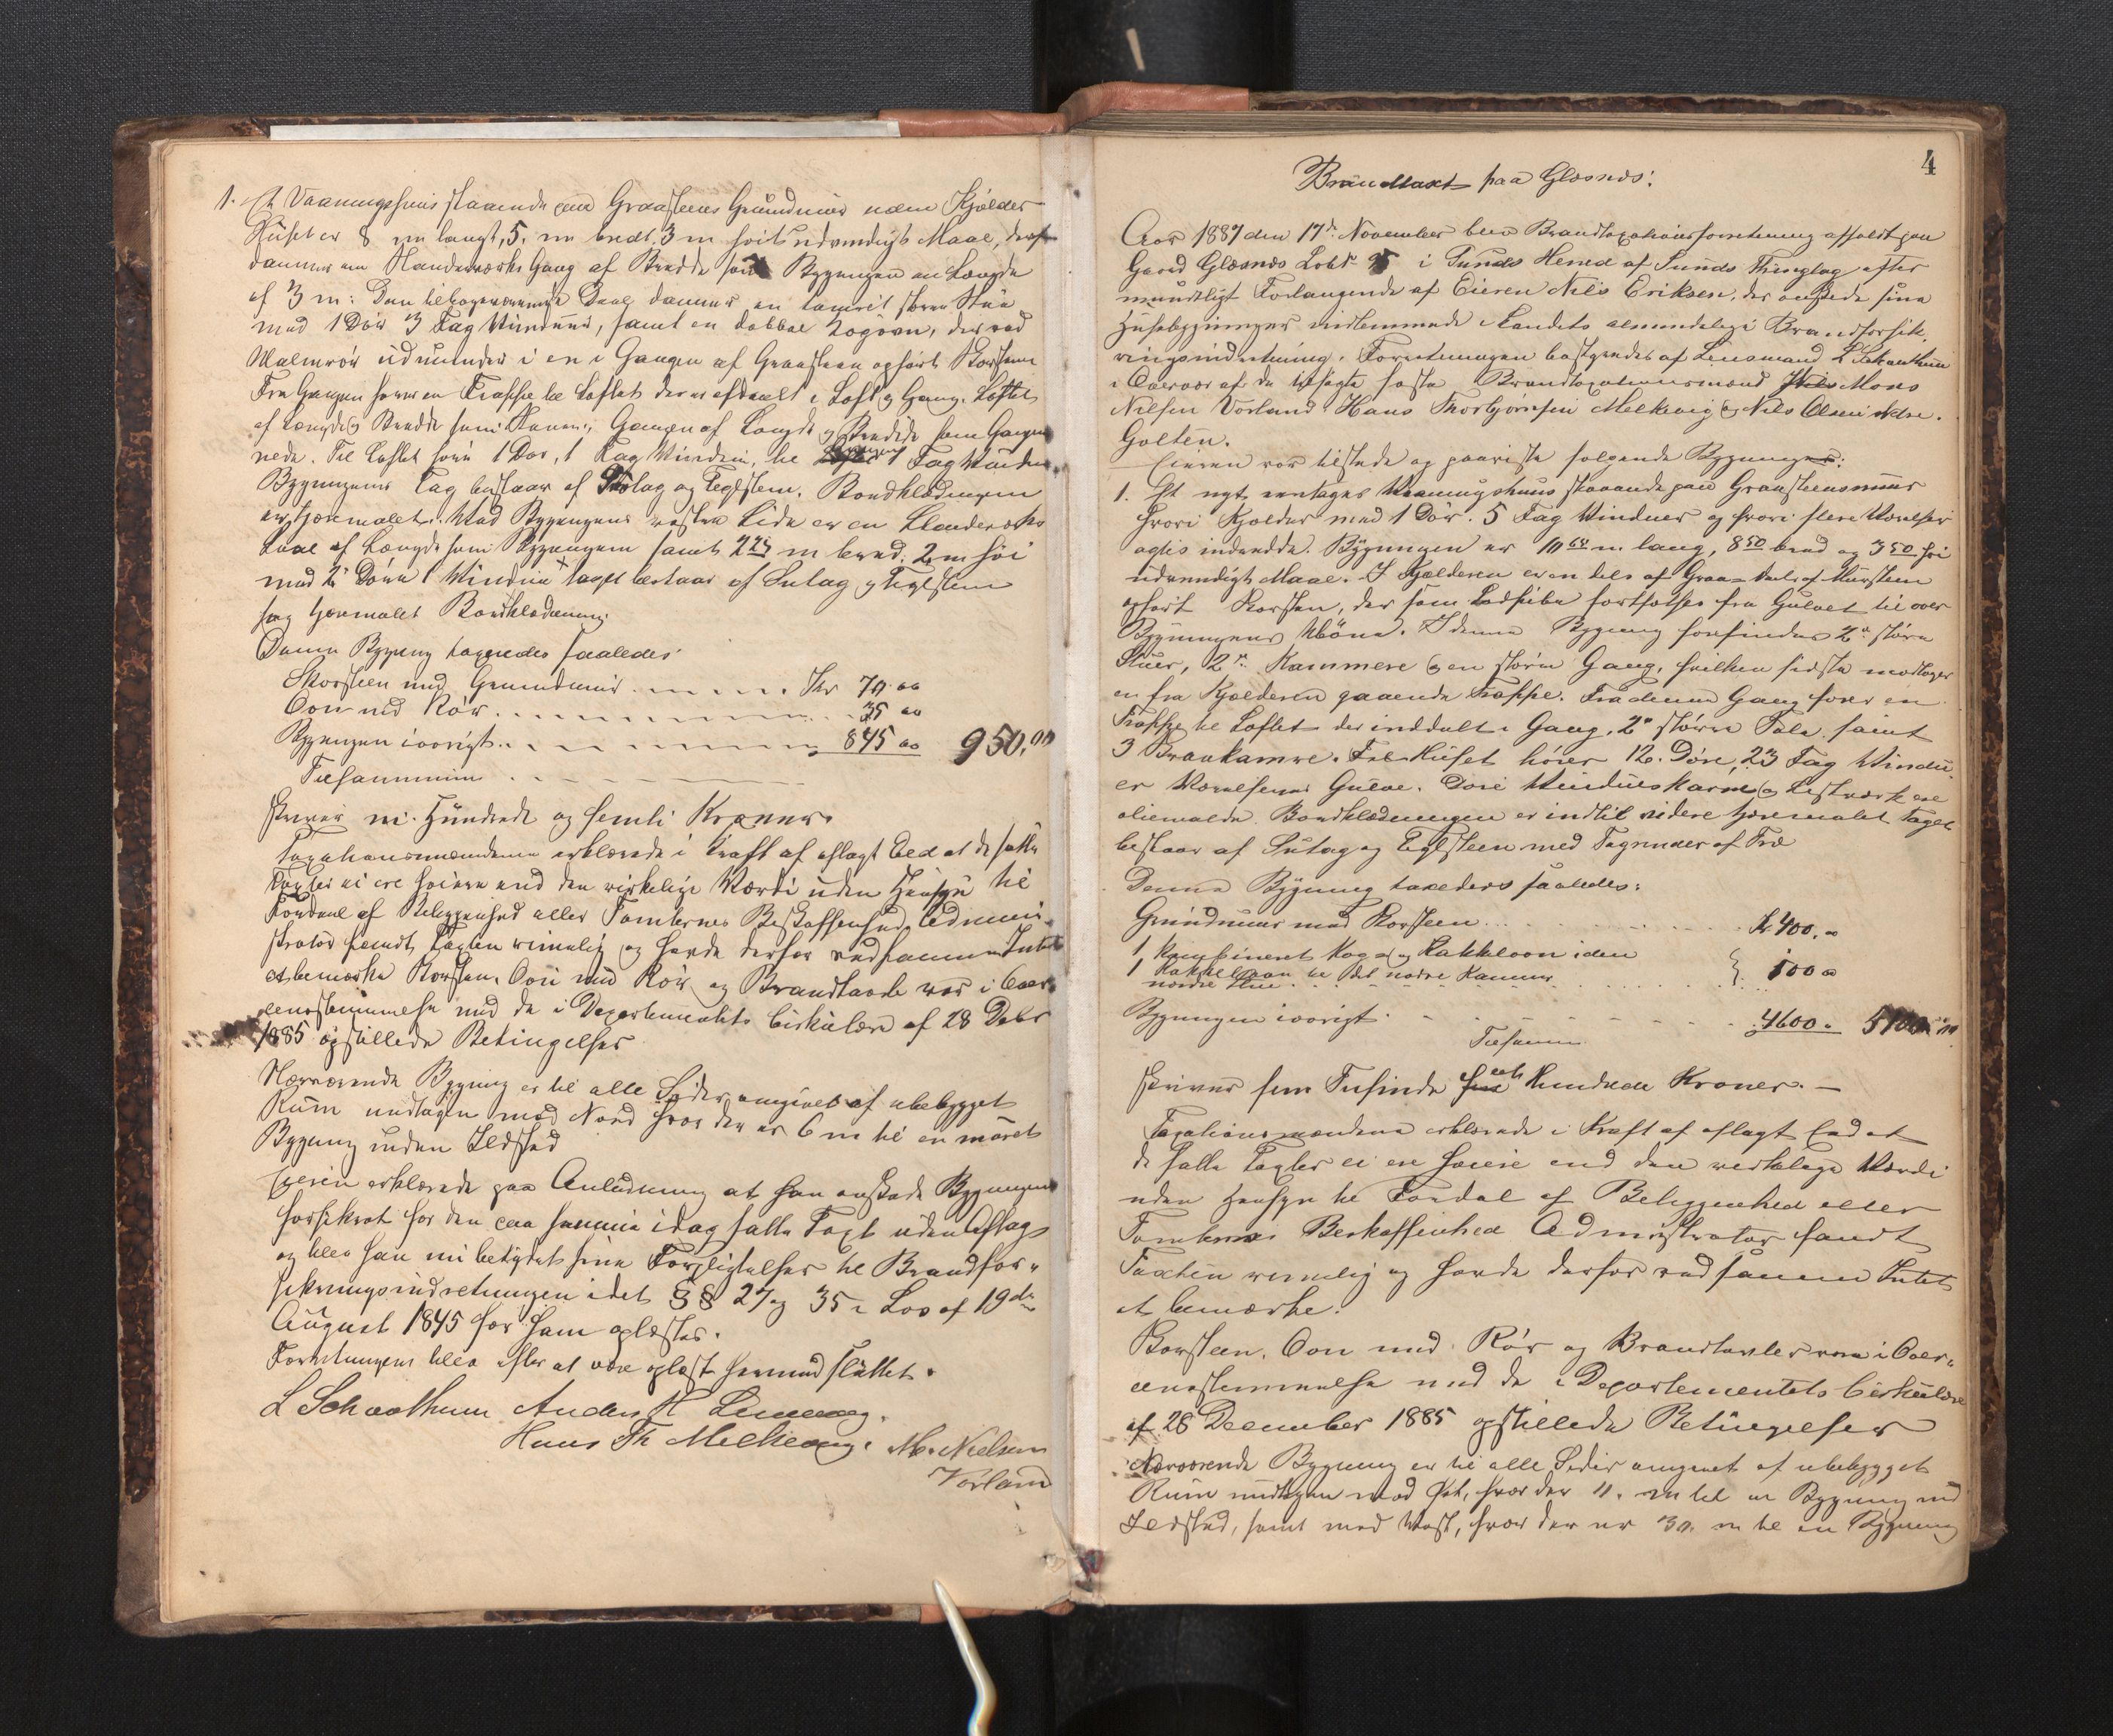 1. Et Vaaningshuus staaende paa Graasteens Grundmuur uden Kjelder
Huset er 8 m langt, 5, m bredt. 3 m høit udvendigt Maal, deraf
dannes en Gang af Bredde som Bygningen en Længde
af 3 m: Den tiloversværende Deel danner en tømret større Stue
med 1 Dør 3 Fag Vinduer, samt en dobbel Kogeovn, der ved
Malmrør udmunder i en i Gangen af Graasteen opført Skorsteen
Fra Gangen fører en Trappe til Loftet der er afdeelt i Loft og Gang. Loftet
af Længde og Bredde som Stuen, Gangen af Længde og Bredde som Gangen
nede. Til Loftet hører 1 Dør, 1 Fag Vindu, til Gangen 1 Fag Vindu
Bygningens Tag bestaar af Sutag og Teglsteen. Bordklædningen
er tjæremalet. Ved Bygningens vestre Side er en
af Længde som Bygningen samt 2 m bred. 2 m høi
med 2 Døre 1 Vindue taget bestaar af Sutag og Teglsteen
og tjæremalet Bordklædning.
Denne Bygning taxeredes saaledes
Skorsteen med Grundmuur . . . . . Kr 70 00
Oon med Rør . . . . . . . 35 00
Bygningen iøvrigt . . . . . . 845 00 950,00
Tilsammen . . . .
skriver ni Hundrede og femti Kroner.
Taxationsmændene erklærede i Kraft af aflagt Eed at de satte
Taxter ei ere høiere end den virkelige Værdi uden Hensyn til
Fordeel af Beliggenhed eller Tomternes Beskaffenhed Admini-
strator fandt Taxten rimelig og havde derfor ved samme Intet
at bemærke Skorsteen, Oon med Rør og Brandtavle var i Over-
eensstemmelse med de i Departementets Cirkulære af 28 Debr
1885 opstillede Betingelser
Nærværende Bygning er til alle Sider omgivet af ubebygget
Rum undtagen mod Nord hvor der er 6 m til en muret
Bygning uden Ildsted
Eieren erklærede paa Anledning at han ønskede Bygningen
forsikret for den paa samme idag satte Taxt uden Afslag
og blev han nu betydet sine Forpligtelser til Brandfor-
sikringsindretningen idet §§ 27 og 35 i Lov af 19de
August 1845 for ham oplæstes.
Forretningen blev efter at være oplæst hermed sluttet.
L Schaathum Anders H
Hans Th Melkevig. M. Nielsen
Vorland
4
Brandtaxt paa Glæsnæs:
Aar 1887 den 17de November blev Brandtaxationsforretning afholdt paa
Gaard Glæsnæs Løbr i Sunds Herred af Sunds Thinglag efter
mundtligt Forlangende af Eieren Nils Eriksen, der ønskede sine
Husebygninger indlemmede i Landets almindelige Brandforsik-
ringsindretning. Forretningen bestyredes af Lensmand L Schaathum
i Overvær af de opnævnte faste Brandtaxationsmænd Mons
Nilsen Vorland, Hans Thorbjørnsen Melkevig og Nils Olsen Nedre
Golten.
Eieren var tilstede og paaviste følgende Bygninger:
1. Et nyt Vaaningshuus staaende paa Graasteensmuur
hvori Kjælder med 1 Dør. 5 Fag Vinduer og hvori flere Værelser
agtes indredde. Bygningen er 10 68 m. lang, 8 50 bred og 3 50 høi
udvendigt Maal. I Kjælderen er en dels af Graa- dels af Muursteen
opført Skorsteen, der som Ladpibe fortsættes fra Gulvet til over
Bygningens Møne. I denne Bygning forefindes 2de større
Stuer, 2de Kammere og en større Gang, hvilken sidste modtager
en fra Kjælderen gaaende Trappe. Fra denne Gang fører en
Trappe til Loftet der inddelt i Gang, 2de større Sale, samt
3 Kammere. Til Huset hører 12. Døre, 23 Fag Vindu.
er Værelserne Gulve, Døre Vindueskarme og Listværk ere
oliemalede. Bordklædningen er indtil videre tjæremalet Taget
bestaar af Sutag og Teglsteen med Tagrender af Træ
Denne Bygning taxeredes saaledes:
Grundmuur med Skorsteen . . . . Kr 400. 00
1 kombineret Kog- og Kakkeloon i den
nordre Stue
1 Kakkeloon til det nordre Kammer } 100 00
Bygningen iøvrigt . . . . 4600. 5100,00
Tilsammen
skriver fem Tusinde eet Hundrede Kroner. —
Taxationsmændene erklærede i Kraft af aflagt Eed at
de satte Taxter ei ere høiere end den virkelige Værdi
uden Hensyn til Fordel af Beliggenhed eller
Tomternes Beskaffenhed Administrator fandt
Taxten rimelig og havde derfor ved samme Intet
at bemærke.
Skorsteen, Oon med Rør og Brandtavler var i Over-
eensstemmelse med de i Departementets Cirkulære
af 28 December 1885 opstillede Betingelser
Nærværende Bygning er til alle Sider omgivet af ubebygget
Rum undtagen mod Øst, hvor der 11. m til en Bygning med
Ildsted, samt mod Vest, hvor der er 30. m til en Bygning